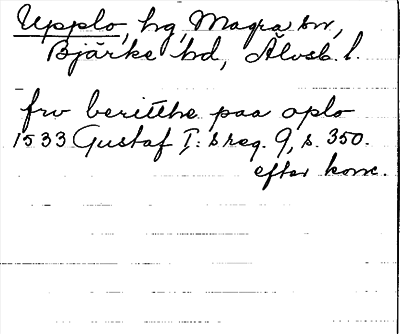 Upplo, hg, Magra sn,
Bjärke hd, Älvsb. l.
frv beritthe paa oplo
1533 Gustaf I: s reg. 9, s. 350.
efter konc.